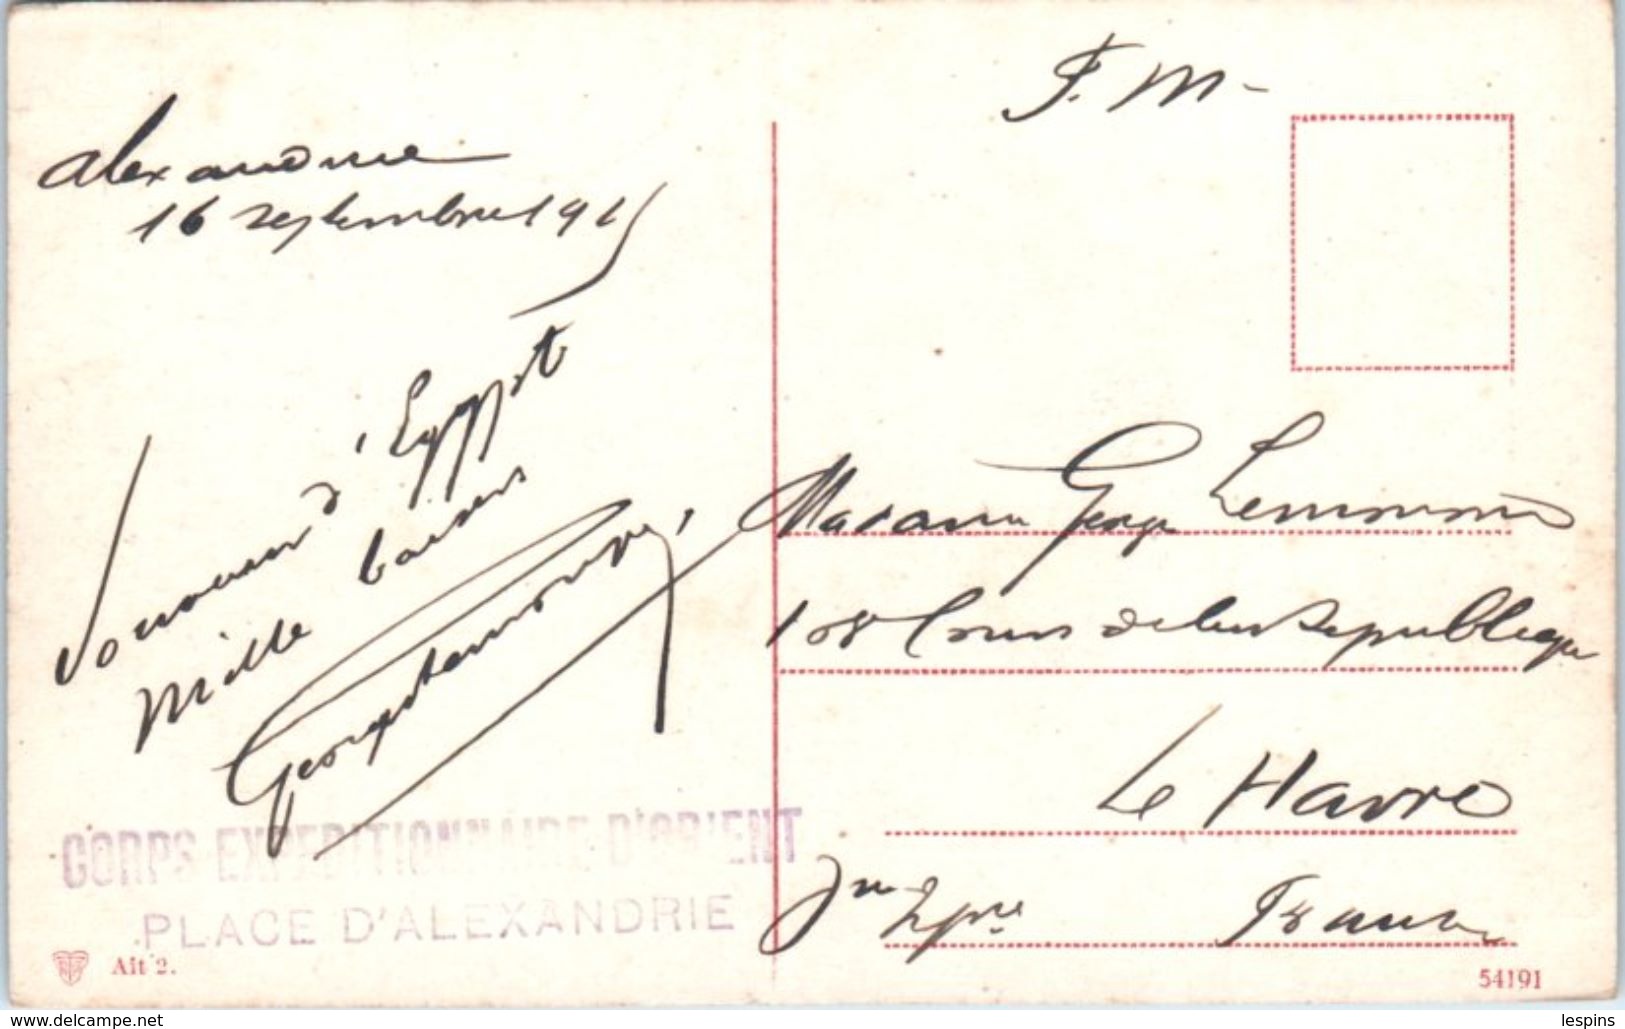 F. M-
Alexandrie
16 septembre 1915
Souvenir d'Egypt
Mille baisers
Madame George Lemonnier
108 Cours de la Republique
Le Havre
Sne Infre France
CORPS EXPEDITIONNAIRE D'ORIENT
PLACE D'ALEXANDRIE
Ait 2.
54191
www.delcampe.net
lespins